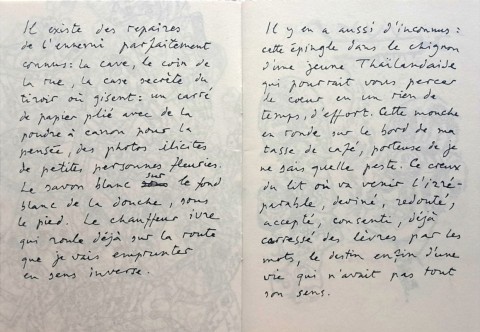 Il existe des repaires
de l'ennemi parfaitement
connus : la cave, le coin de
la rue, la case secrète du
tiroir où gisent : un carré
de papier plié avec de la
poudre à canon pour la
pensée, des photos illicites
de petites personnes fleuries.
Le savon blanc sur le fond
blanc de la douche, sous
le pied. Le chauffeur ivre
qui roule déjà sur la route
que je vais emprunter
en sens inverse.
Il y en a aussi d'inconnus :
cette épingle dans le chignon
d'une jeune Thaïlandaise
qui pourrait vous percer
le coeur en un rien de
temps, d'effort. Cette mouche
en ronde sur le bord de ma
tasse de café, porteuse de je
ne sais quelle peste. Ce creux
du lit où va venir l'irré-
parable, deviné, redouté,
accepté, consenti, déjà
caressé des lèvres par les
mots, le destin enfin d'une
vie qui n'avait pas tout
son sens.